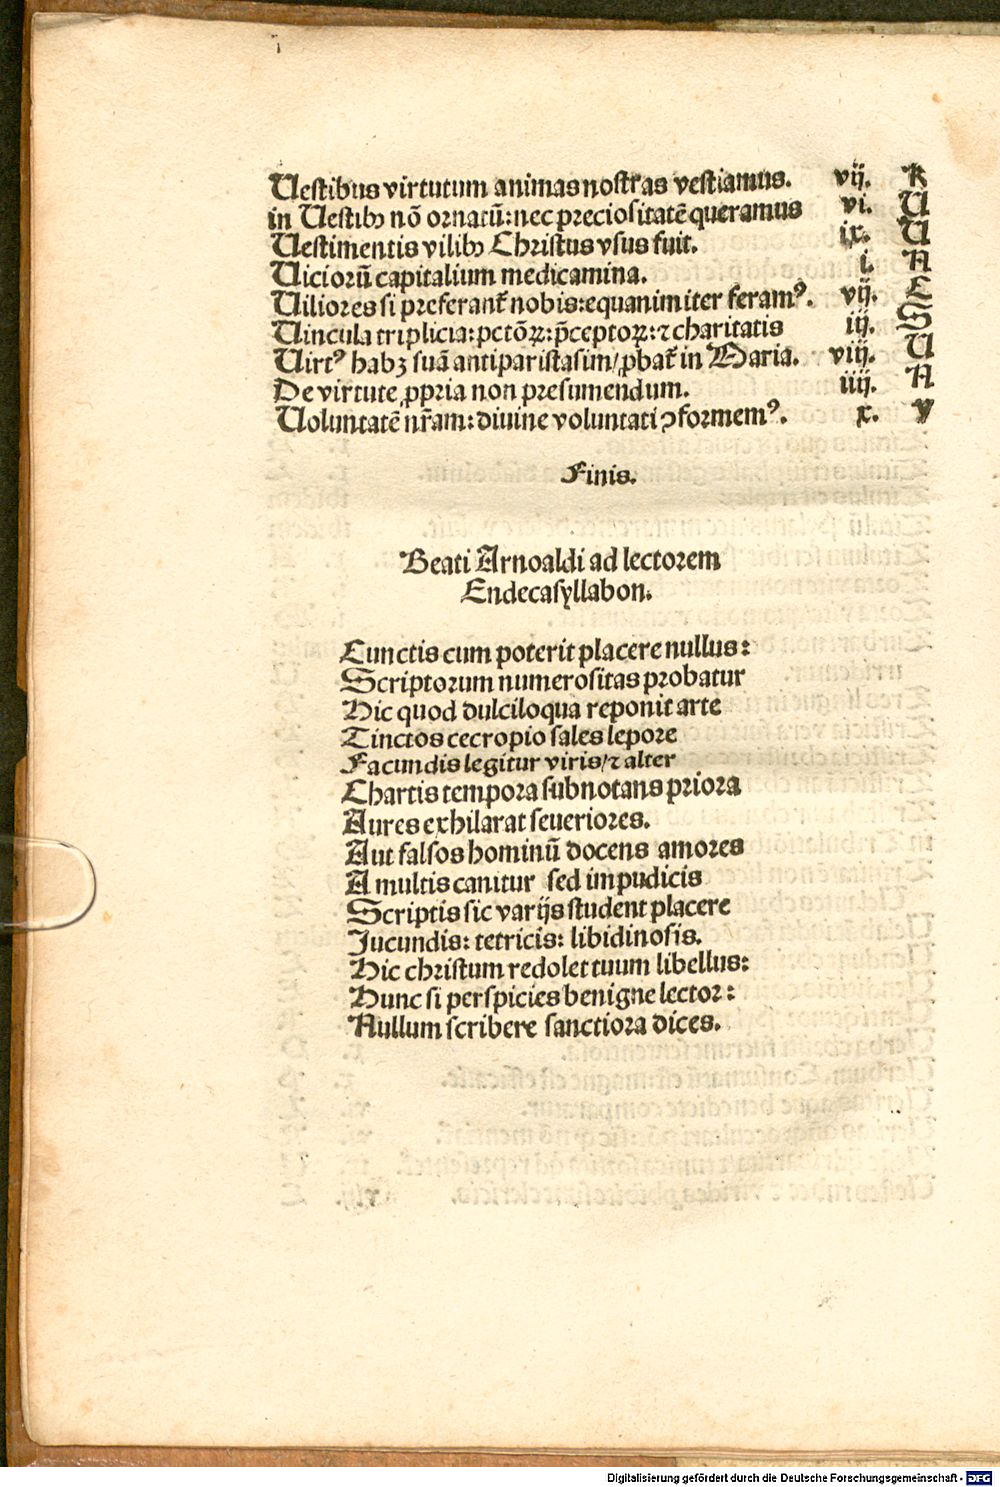 Uestibus virtutum animas nostras vestiamus. vij. R
in Uestibꝫ nõ ornatũ: nec preciositatẽ queramus vi. U
Uestimentis vilibꝫ Christus vsus fuit. ix. U
Uiciorũ capitalium medicamina. i. A
Uiliores si preferant᷑ nobis: equanimiter feramꝰ. vij. E
Uincula triplicia: pctõꝝ: p̃ceptoꝝ: ⁊ charitatis iij. S
Uirtꝰ habꝫ suã antiparistasim/ ꝓbat᷑ in Maria. viij. U
De virtute ꝓpria non presumendum. iiij. A
Uoluntatẽ nr̃am: diuine voluntati ↄformemꝰ. x. V
Finis.
Beati Arnoaldi ad lectorem
Endecasyllabon.
Cunctis cum poterit placere nullus:
Scriptorum numerositas probatur
Hic quod dulciloqua reponit arte
Tinctos cecropio sales lepore
Facundis legitur viris/ ⁊ alter
Chartis tempora subnotans priora
Aures exhilarat seueriores.
Aut falsos hominũ docens amores
A multis canitur sed impudicis
Scriptis sic varijs student placere
Jucundis: tetricis: libidinosis.
Hic christum redolet tuum libellus:
Hunc si perspicies benigne lector:
Nullum scribere sanctiora dices.
Digitalisierung gefördert durch die Deutsche Forschungsgemeinschaft - DFG